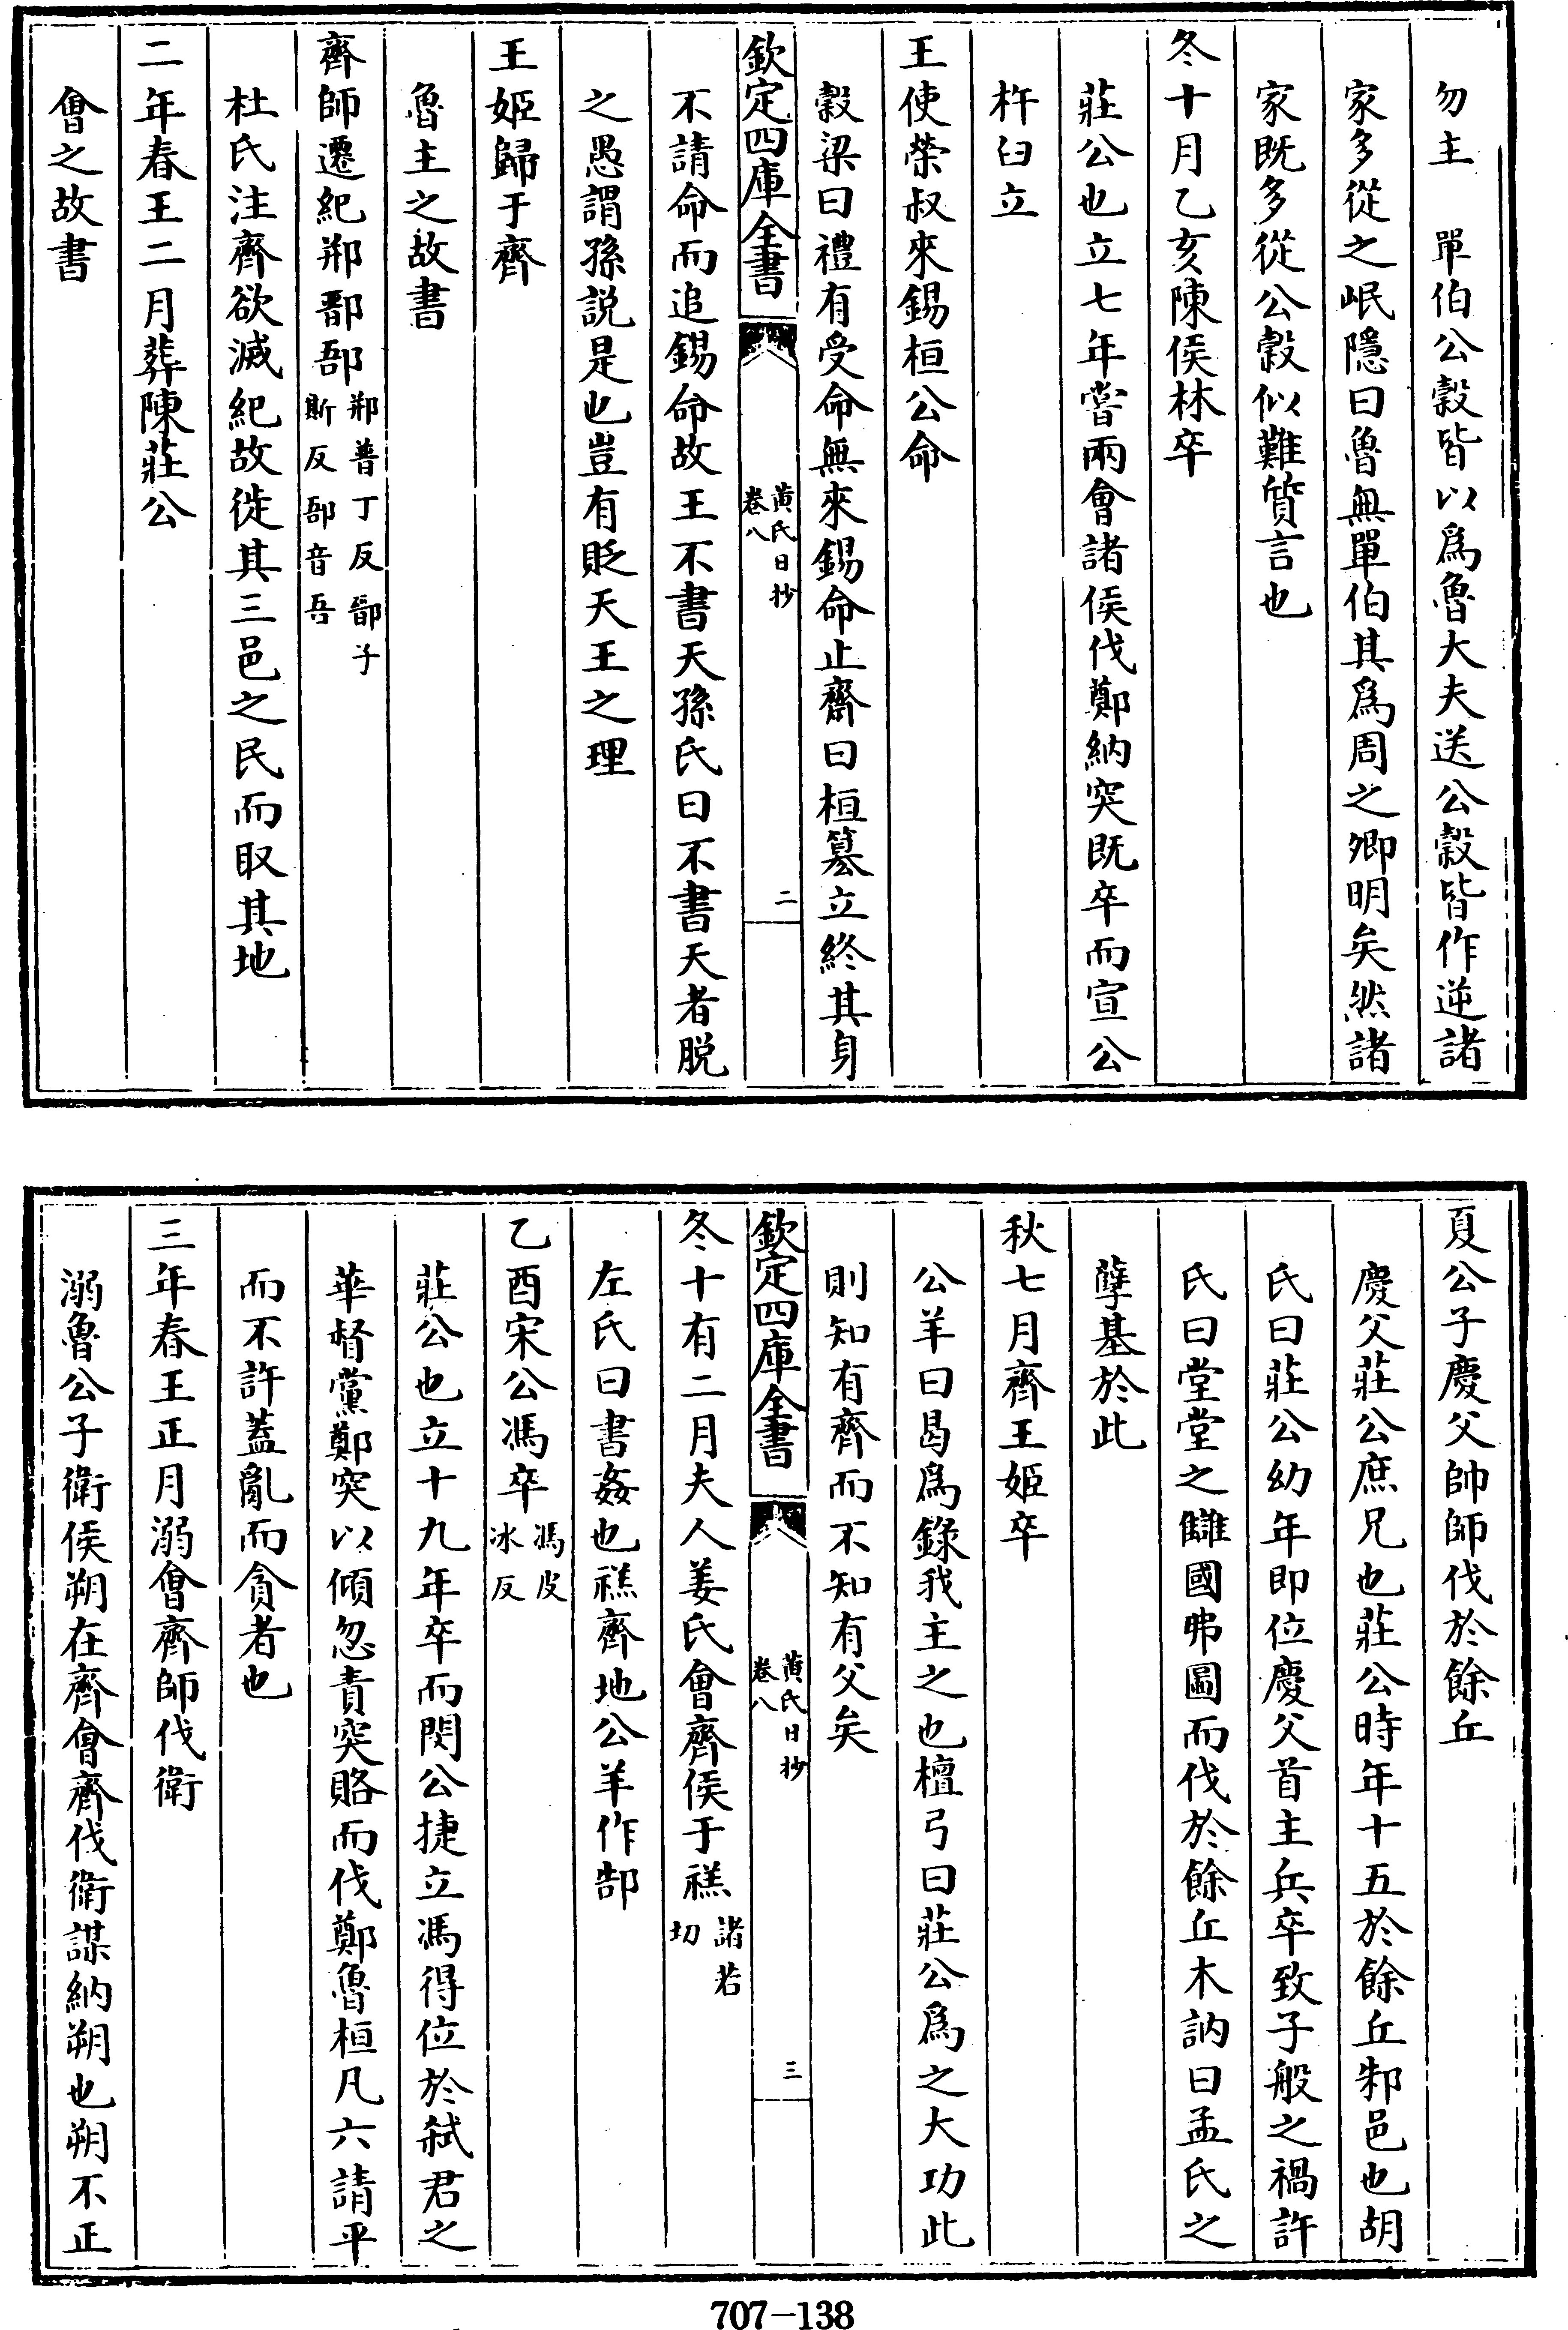 勿主　單伯公穀皆以爲魯大夫送公穀皆作逆諸
家多從之岷隱曰魯無單伯其爲周之卿明矣然諸
家既多從公穀似難質言也
冬十月乙亥陳侯林卒
莊公也立七年嘗兩會諸侯伐鄭納突既卒而宣公
杵臼立
王使榮叔來錫桓公命
穀梁曰禮有受命無來錫命止齋曰桓簒立終其身
欽定四庫全書
黄氏日抄
卷八
二
不請命而追錫命故王不書天孫氏曰不書天者脱
之愚謂孫説是也豈有貶天王之理
王姬歸于齊
魯主之故書
齊師遷紀郱鄑郚郱普丁反鄑子斯反郚音吾
杜氏注齊欲滅紀故徙其三邑之民而取其地
二年春王二月葬陳莊公
會之故書
夏公子慶父帥師伐於餘丘
慶父莊公庶兄也莊公時年十五於餘丘邾邑也胡
氏曰莊公幼年即位慶父首主兵卒致子般之禍許
氏曰堂堂之讎國弗圖而伐於餘丘木訥曰孟氏之
孽基於此
秋七月齊王姬卒
公羊曰曷爲錄我主之也檀弓曰莊公爲之大功此
則知有齊而不知有父矣
欽定四庫全書
黄氏日抄
卷八
三
冬十有二月夫人姜氏會齊侯于禚諸若切
左氏曰書姦也禚齊地公羊作郜
乙酉宋公馮卒馮皮冰反
莊公也立十九年卒而閔公捷立馮得位於弑君之
華督黨鄭突以傾忽責突賂而伐鄭魯桓凡六請平
而不許蓋亂而貪者也
三年春王正月溺會齊師伐衛
溺魯公子衛侯朔在齊會齊伐衛謀納朔也朔不正
707-138